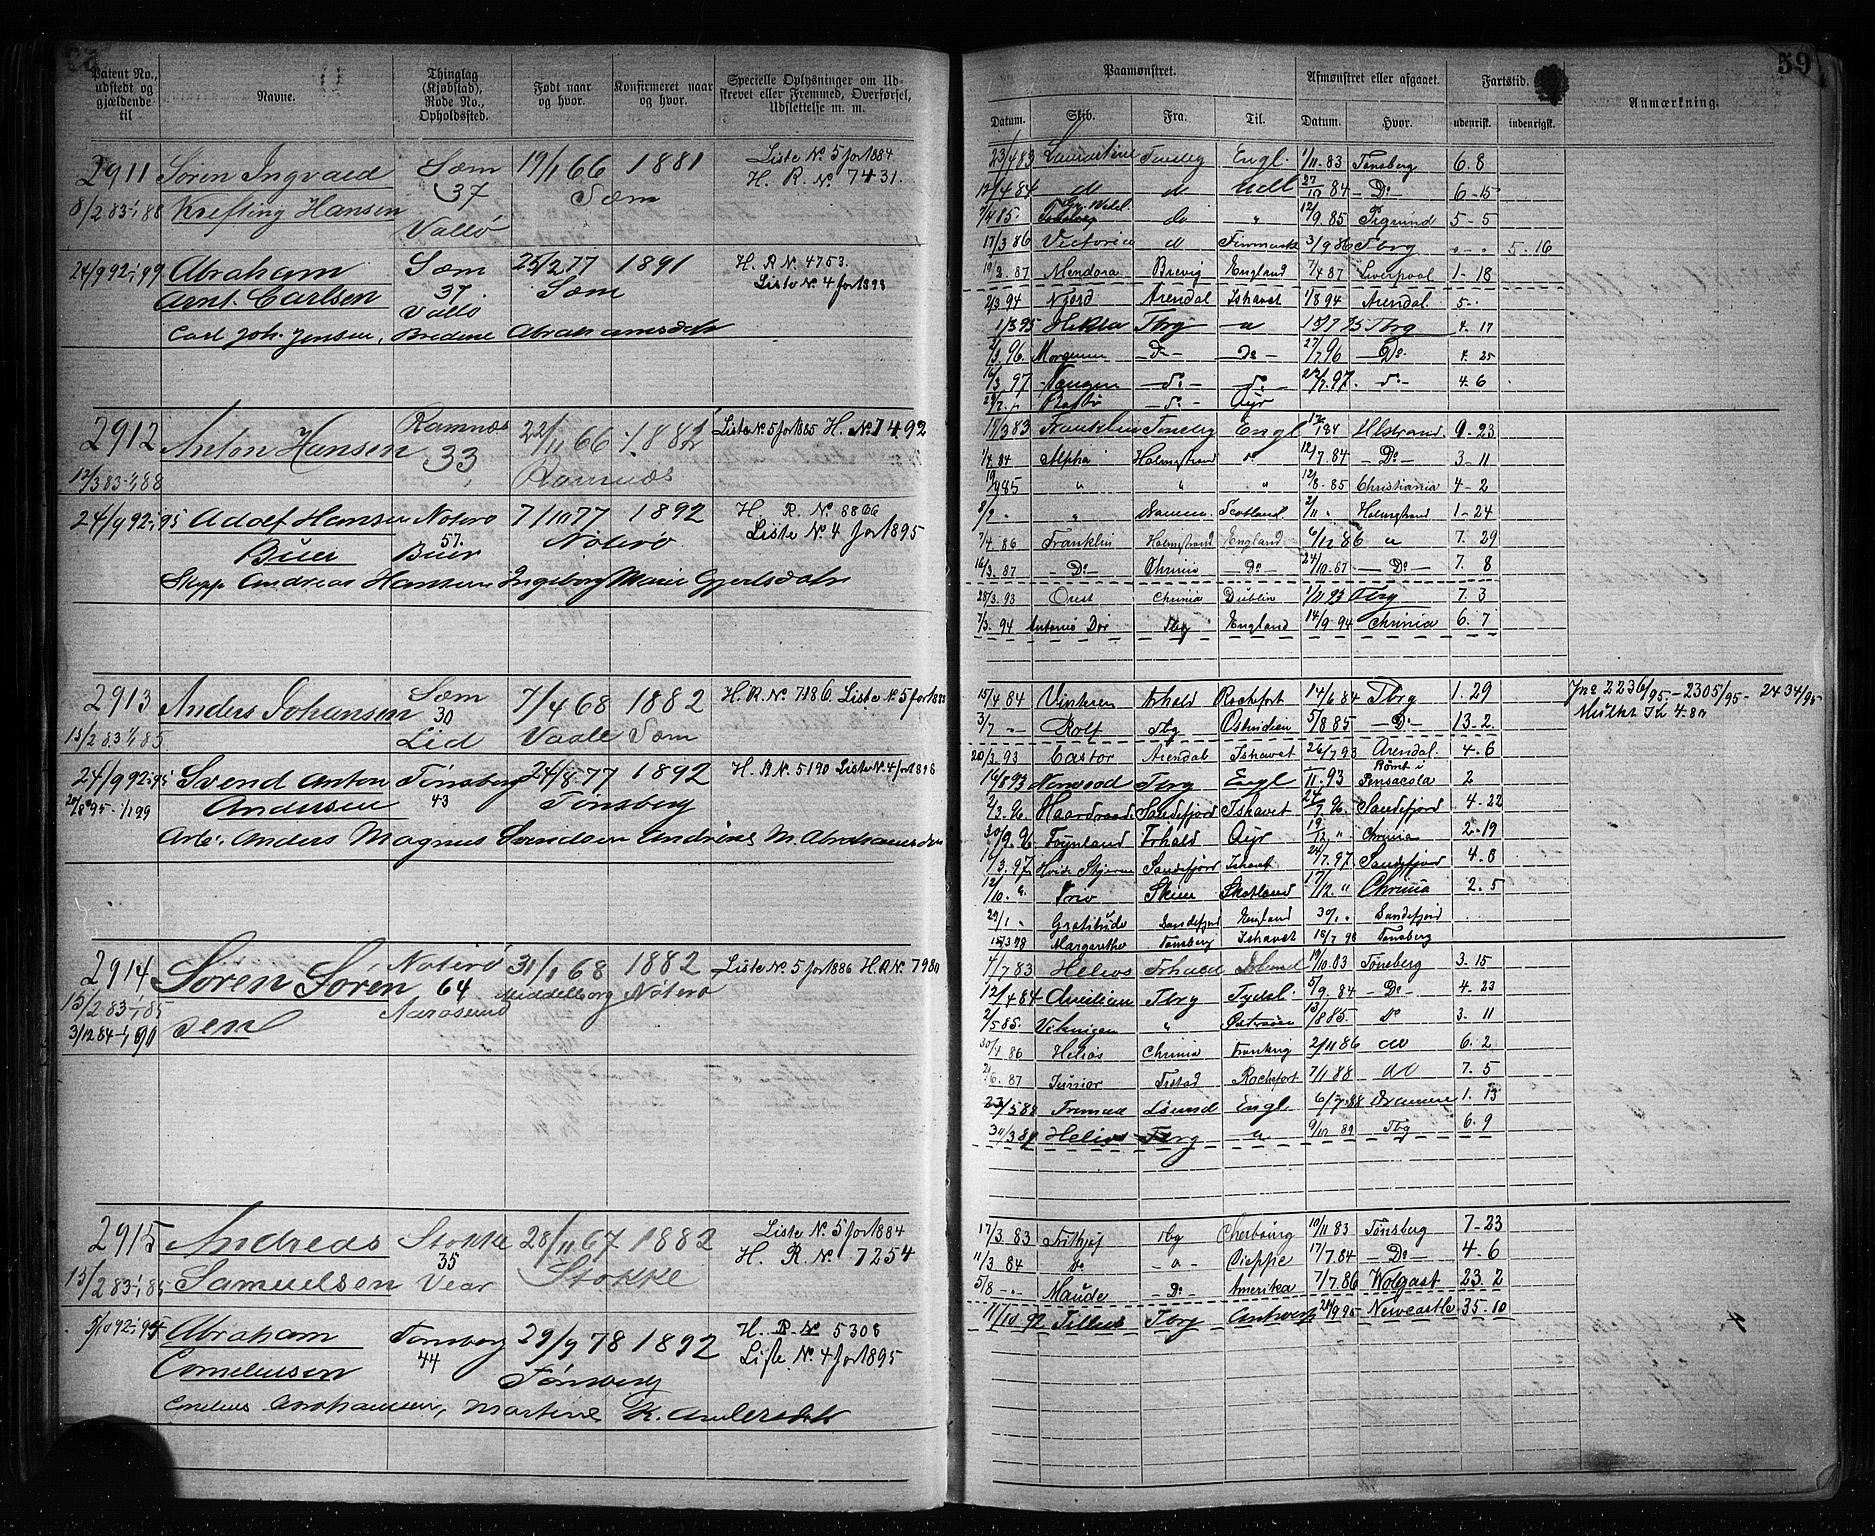 59
Patent No., udstedt og gjældende til
Navne.
Thinglag (Kjøbstad), Rode No., Opholdssted.
Født naar og hvor.
Konfirmeret naar og hvor.
Specielle Oplysninger om Udskrevet eller Fremmed, Overførsel, Udslettelse m. m.
Paamønstret.
Afmønstret eller afgaaet.
Fartstid.
Anmærkning.
Datum. Skib. Fra. Til. Datum. Hvor. udenrigsk. indenrigsk.
2911 Søren Ingvald Sæm 19/1 66 1881 Liste No. 5 for 1884
8/2 83-1/1 88 Krefting Hansen 37 Sæm H. R. No. 7431.
Vallø
24/9 92-1/1 99 Abraham Sæm 25/2 77 1891 H. R. No. 4753.
Arnt. Carlsen 37 Sæm Liste No. 4 for 1898
Vallø
Carl Joh. Jensen, Bredine Abrahamsdtr
2912 Anton Hansen Ramnæs 22/11 66 1882 Liste No. 5 for 1885 H. No. 7492
12/3 83-1/1 88 33 Ramnæs
24/9 92-1/1 95 Adolf Hansen Nøterø 7/10 77 1892 H. R. No. 8866
Buer 57. Buer Nøterø Liste No. 4 for 1895
Skipp. Andreas Hansen Ingeborg Marie Gjertsdatr
2913 Anders Johansen Sæm 7/4 68 1882 H. R. No. 7186 Liste No. 5 for 1885
15/2 83-1/1 85 30 Lid Vaale Sæm
24/9 92-1/1 95 Svend Anton Tønsberg 24/8 77 1892 H. R. No. 5190 Liste No. 4 for 1898
20/8 95-1/1 99 Andersen 43 Tønsberg
Arb. Anders Magnus Svendsen Andrine M. Abrahamsdtr
2914 Søren Søren Nøterø 31/1 68 1882 Liste No. 5 for 1886 H. R. No. 7980
15/2 83-1/1 85 64 Middelborg Nøterø
3/12 84-1/1 90 sen Aarøsund
2915 Andreas Stokke 28/11 67 1882 Liste No. 5 for 1884
15/2 83-1/1 85 Samuelsen 35 Vear Stokke H. R. No. 7254
Abraham Tønsberg 29/9 78 1892 H. R. No. 5308
Corneliussen 44 Tønsberg Liste No. 4 for 1895
Cornelius Abrahamsen, Martine K. Andersdatr
23/4 83 Laurentine Tønsbg Engl 1/11 83 Tønsberg 6. 8
12/4 84 do do 27/10 84 Do 6-15
do " 12/9. 85 5-5
17/3 86 Victoria do Finmarken 3/9 86 Tbrg 5-16
19/2. 87 Mendora Brevig England 7/4 87 Liverpool 1-18
2/3 94 Njord Arendal Ishavet 1/8 94 Arendal 5-
1/3 95 Hekla Tbrg " 15/7 95 Tbrg 4. 17
2/3 96 Morgenen Do Do 27/7 96 Do 4. 25
16/3 97 do do 22/7. 97. do 4. 6
do Ayr
17/3 83 Franklin Tønsbg Engl 12/1 84 Hlstrand. 9. 23
1/4 84 Alpha Holmestrand do 12/7. 84 Do 3-11
85 " " " 12/8. 85 Christiania 4-2
5/9 " " Dramm. Scotland 2/11 " Holmestrand 1-24
7/4 86 Franklin Holmestrand England 6/12 86 " 7. 29
16/3. 87 Do Chrnia Do 24/10. 87 Do 7. 8
28/3. 93 Orest Chrnia Dublin 1/11 93 Tbrg 7. 3
7/3. 94 Antonio Dor Tbg England 14/9. 94 Chrnia 6. 7
15/4 84 Frhald Rochefort 14/6 84 Tbrg 1. 29
Jno 2236/95-2305/95-2434/95
Mulkt
3/7 Rolf Tbg Ostindien 5/8 85 Do 13-2
20/3. 93 Castor Arendal Ishavet 26/7 93 Arendal. 4-6
16/8 93 Norwood Tbrg Engl /11. 93 Rømt i Pensacola 2
2/3. 96 Haardraade Sandefjord Ishavet 24/7. 96 Sandefjord 4-22
30/9. 96 Føynland Frhald Ayr 19/12 " Chrnia 2-19
16/3. 97. Hvide Bjørn Sandefjord Ishavet 24/7. 97 Sandefjord 4-8
12/10. " Frey Skien Skotland 17/12. " Chrnia 2. 5
29/1 " Gratitude Sandefjord England 30/1 " Sandefjord
15/3 98 Margarethe Tønsberg Ishavet 16/7 98 Tønsberg
4/7 83 Helios Frhald 19/10 83 Tønsberg 3-15
12/4 84 Tbrg Tydsl 5/9. 84 Do 4. 23
2/5 85. Vikingen " 13/8 85. Do 3. 11
86 Helios Chrnia Frankrig 2/11 86 do 6. 2
21/6. 87 Junior Frstad Rochefort 7/1 88 do 7. 5
23/5 88 Engl. 6/7 88 Drammen 1. 13
30/3 89 Helios Tbrg " 9/10 89 Tbg 6. 9
17/3. 83 Frithjof Tbg Cherbourg 10/11 83 Tønsberg 7-23
11/3. 84 Do " Dieppe 17/7. 84 Do 4. 6
5/8 Maude Do Amerika 7/7. 86 Wolgast 23. 2
11/10. 92 Tellus Tbrg Antwerp 20/9 95 Newcastle 35-10